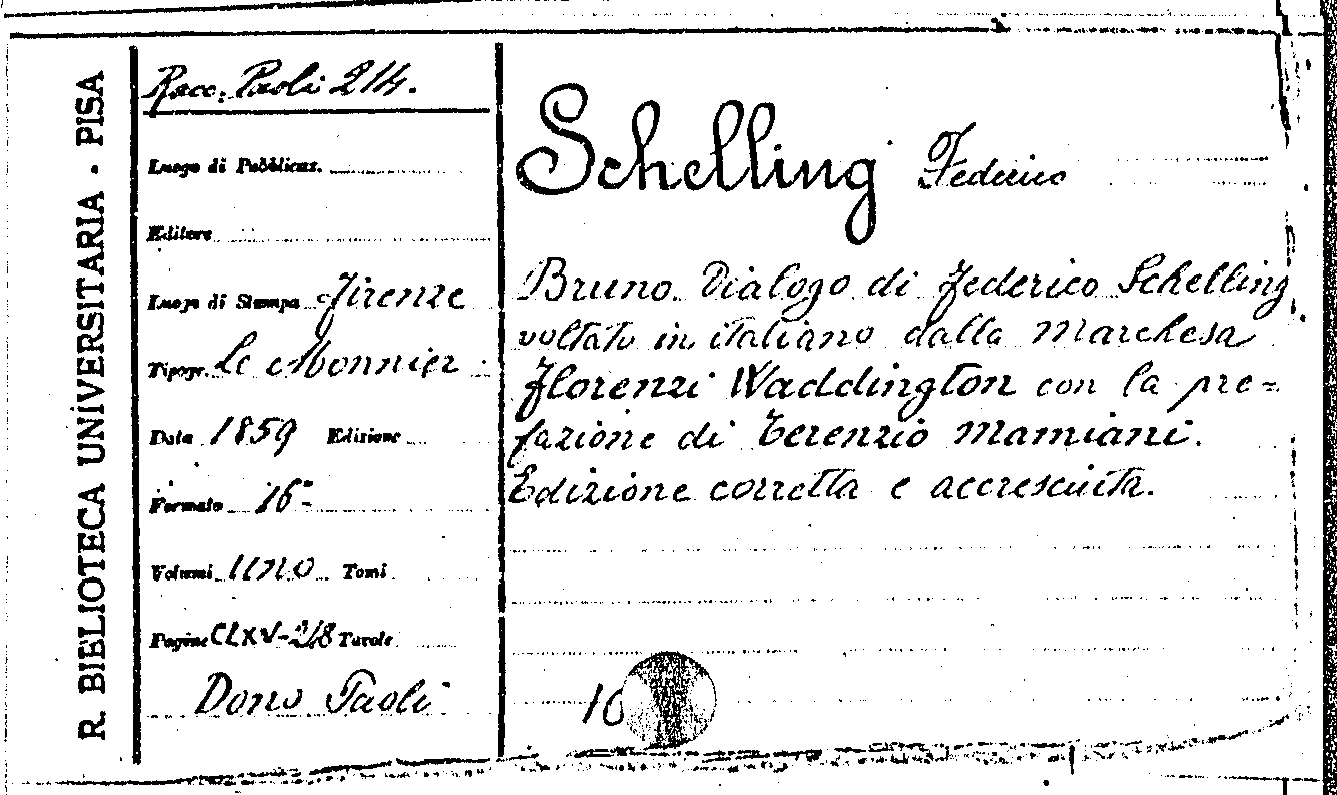 R. BIBLIOTECA UNIVERSITARIA - PISA
Racc. Paoli 214.
Luogo di Pubblicaz.
Editore
Luogo di Stampa Firenze
Tipogr. Le Monnier
Data 1859 Edizione
Formato 16º
Volumi uno Tomi
Pagine CLXV-218 Tavole
Dono Paoli
Schelling Federico
Bruno. Dialogo di Federico Schelling
voltato in italiano dalla Marchesa
Florenzi Waddington con la pre=
fazione di Terenzio Mamiani.
Edizione corretta e accresciuta.
10